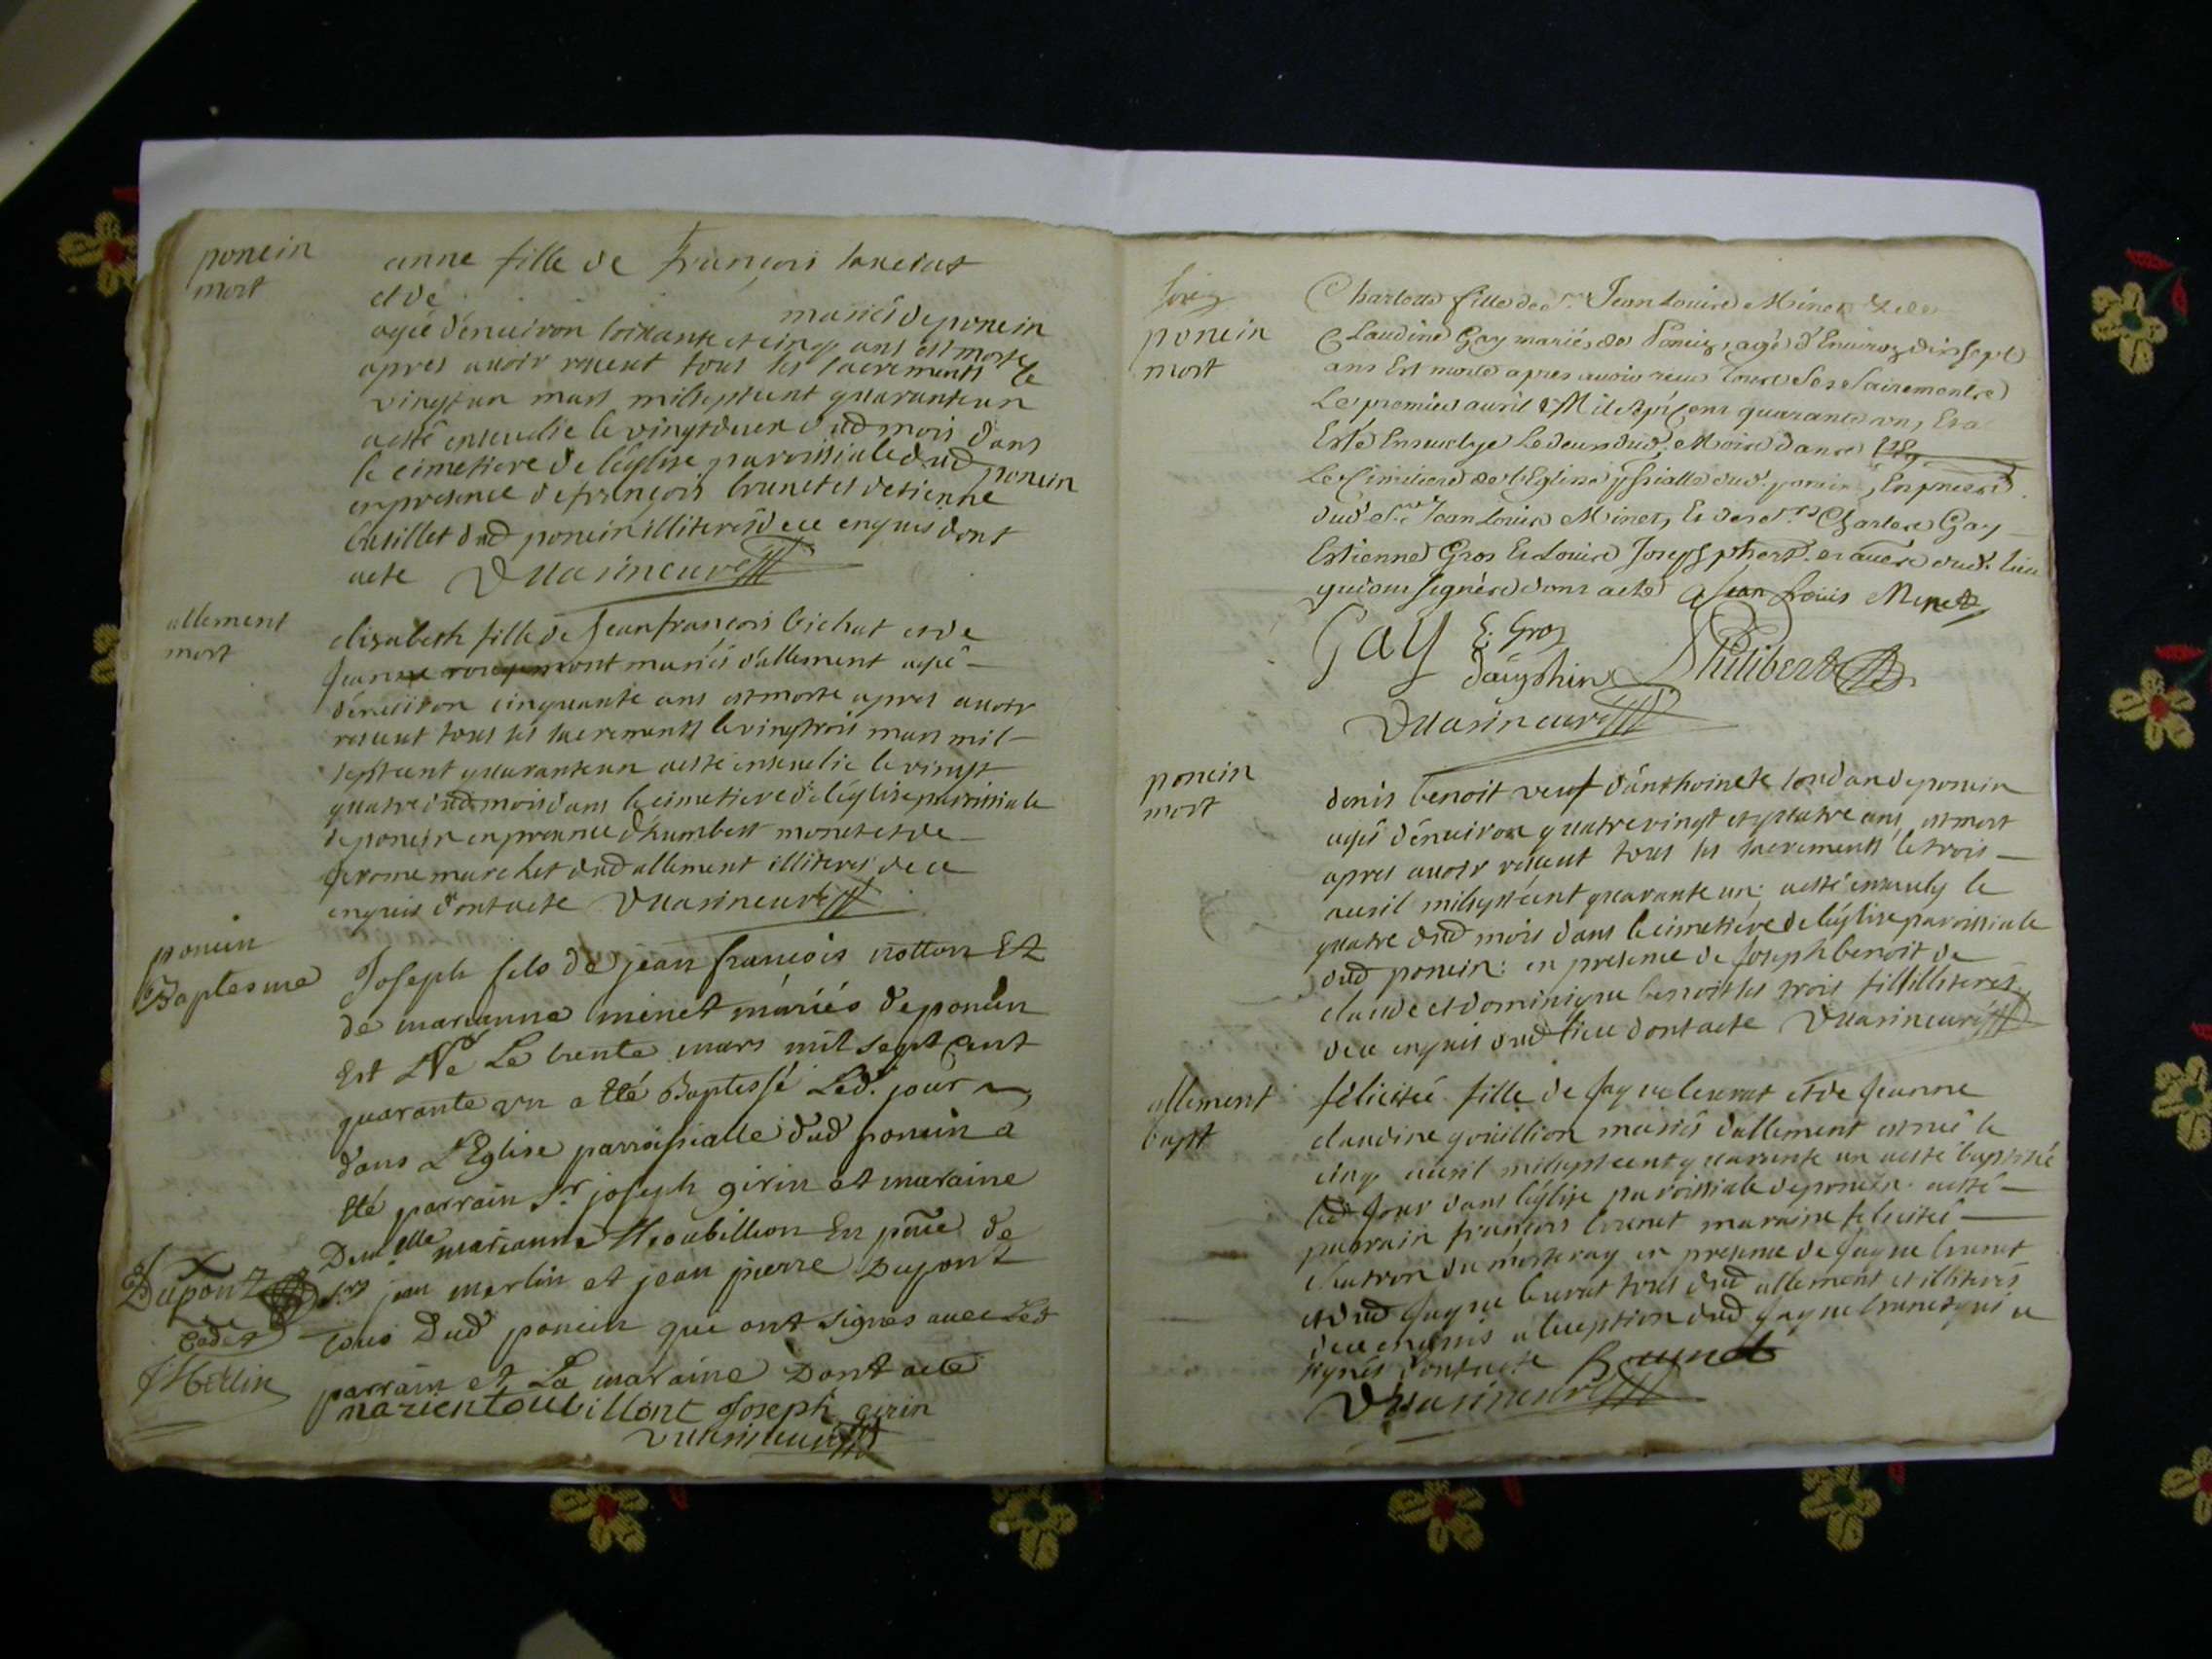 ponein
mort
anne fille de françois
et de
mariés de ponein
agée d'enuiron soixante et cinq ans est morte
apres auoir receut tous les sacrements le
vingt un mars mil sept cent quarante un
a esté enseuelie le vingt deux dud mois dans
le cimetiere de l'église paroissiale dud ponein
en presence de françois brunet et detienne
busillet dud ponein illiterés de ce enquis dont
acte
allement
mort
elisabeth fille de Jean françois bichat et de
Jeanne rougemont mariés d'allement agée
d'enuiron cinquante ans est morte apres auoir
receut tous les sacrements le vingt trois mars mil
sept cent quarante un a esté enseuelie le vingt
quatre dud mois dans le cimetiere de l'église paroissiale
de ponein en presence d'humbert monet et de
gerome marchet dud allement illiterés de ce
enquis dont acte
ponein
Baptesme
Joseph fils de jean francois notton Et
de marianne minet máriés de ponein
Est Né Le trente mars mil sept Cent
quarante vn a Eté Baptessé Led. jour
dans L'Eglise parroissialle dud ponein a
Eté parrain Sr joseph girin et maraine
Demelle marianne En pnce de
Srs jean merlin et jean pierre Dupont
tous Dud ponein qui ont signés auec Led
parrain et La maraine Dont acte
Dupont
Cadet
Merlin
marien toubillont Joseph girin
ponein
mort
Charlotte fille de Sr Jean Louis Minet & de
Claudine Gay mariés de Ponein, agé d'Enuiron dix sept
ans Est morte apres auoir receu tous Ses Sairements
Le premier auril Mil sept cent quarante vn, Et a
Esté Enseuelye Le deux dud. Mois dans
Le Cimitiere de l'Eglise pssialle dud. ponein, En pnces
dud Sr Jean Louis Minet, Et des Srs Charles Gay
Estienne Gros Et Louis Joseph phert. et autres dud. lieu
qui ont signéz dont acte Jean Louis Minet
Gay E. Gros
Dauphin Philibert
ponein
mort
denis benoit veuf d'anthoinete de ponein
agé d'enuiron quatre vingt et quatre ans, est mort
apres auoir receut tous les sacrements le trois
auril mil sept cent quarante un; a esté enseuely le
quatre dud mois dans le cimetiere de l'église paroissiale
dud ponein: en presence de Joseph benoit de
claude et dominique benoit les trois fils illiterés
de ce enquis dud lieu dont acte
allement
bapt
félicitée fille de Jaque leurat et de Jeanne
claudine gouillion mariés d'allement est née le
cinq auril mil sept cent quarante un a esté baptisée
led jour dans l'église paroissiale de ponein a esté
parrain françois brunet maraine felicité
en presence de Jaque brunet
et dud Jaque leurat tous dud allement et illiterés
de ce enquis a l'exception dud Jaque brunet qui a
signé dont acte Brunet